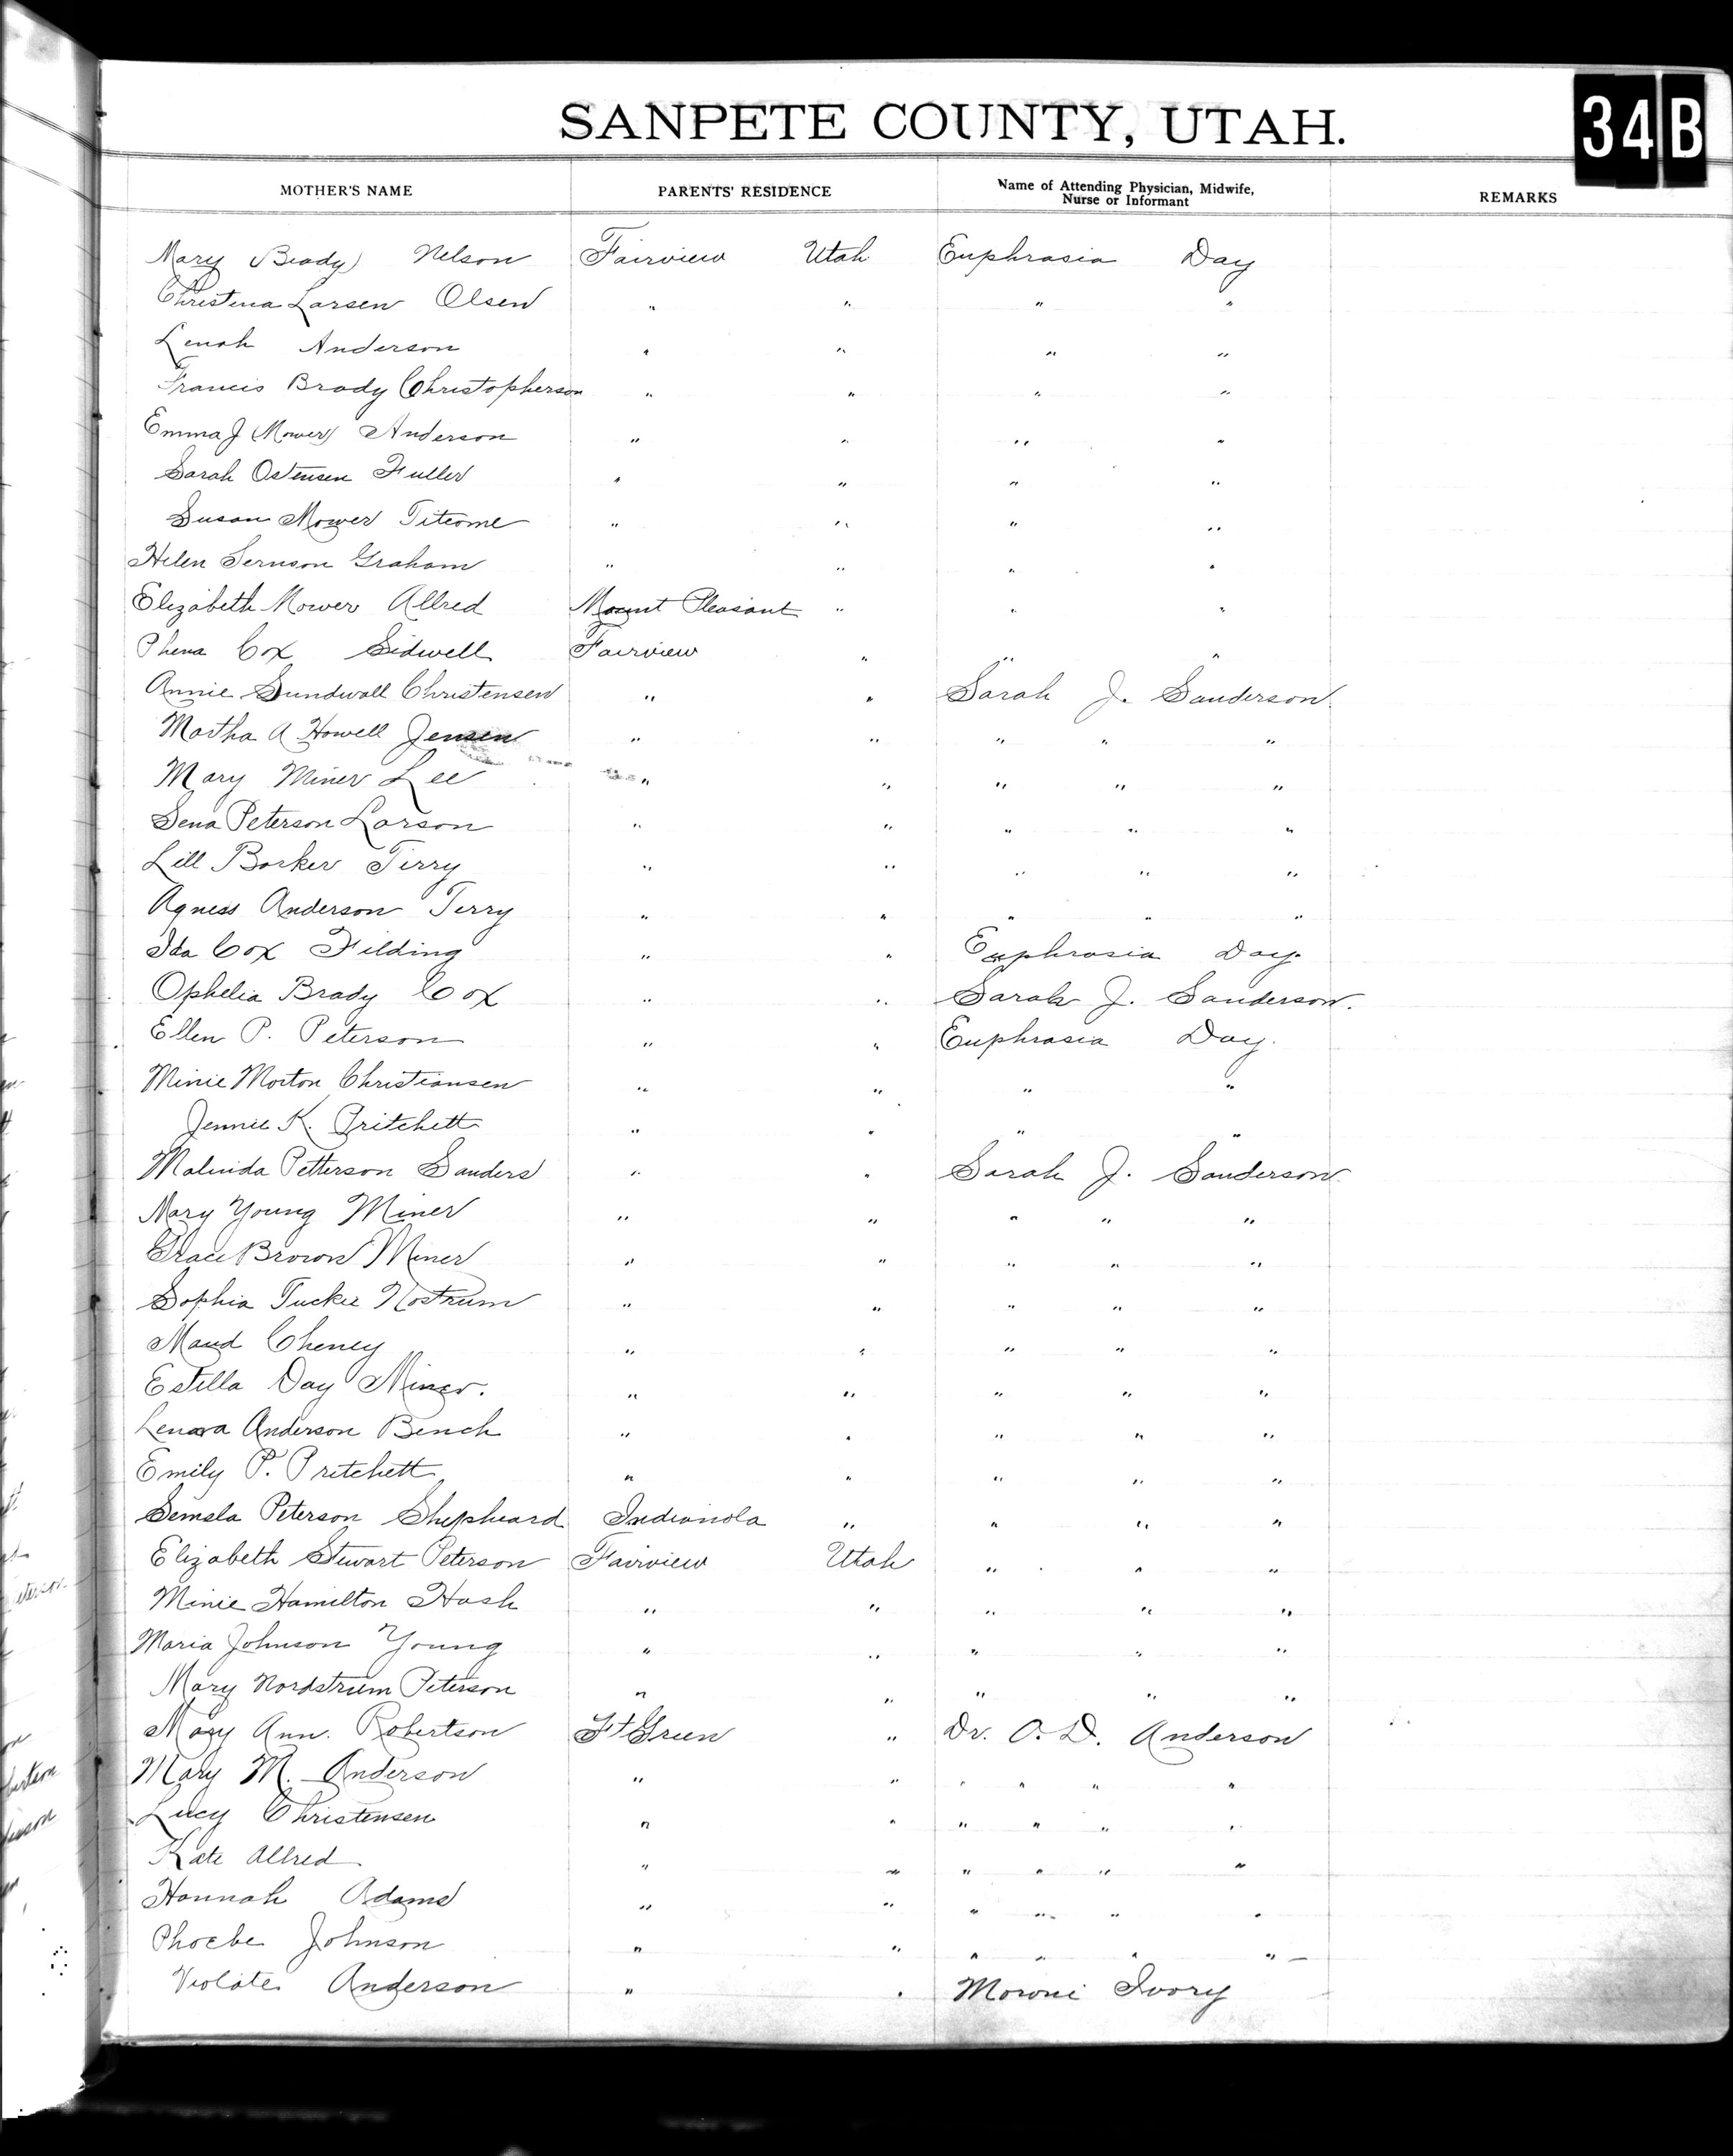 SANPETE COUNTY, UTAH.
34 B
MOTHER'S NAME PARENTS' RESIDENCE Name of Attending Physician, Midwife, Nurse or Informant REMARKS
Mary (Brady) Nelson Fairview Utah Euphrasia Day
Christena Larsen Olsen " " " "
Lenah Anderson " " " "
Francis Brady Christopherson " " " "
Emma J (Mower) Anderson " " " "
Sarah Ostensen Fuller " " " "
Susan Mower Titcome " " " "
Helen Graham " " " "
Elizabeth Mower Allred Mount Pleasant " " "
Phena Cox Sidwell Fairview " " "
Annie Sundwall Christensen " " Sarah J. Sanderson.
Martha A Howell Jensen " " " " "
Mary Miner Lee " " " " "
Sena Peterson Larson " " " " "
Lill Barker Terry " " " " "
Agness Anderson Terry " " " " "
Ida Cox Filding " " Euphrasia Day.
Ophelia Brady Cox " " Sarah J. Sanderson.
Ellen P. Peterson " " Euphrasia Day.
Minie Morton Christiansen " " " "
Jennie K. Pritchett " " " "
Malinda Petterson Sanders " " Sarah J. Sanderson.
Mary Young Miner " " " " "
Grace Brown Miner " " " " "
Sophia Tucker Nostrum " " " " "
Maud Cheney " " " " "
Estella Day Miner. " " " " "
Lenora Anderson Bench " " " " "
Emily P. Pritchett " " " " "
Peterson Shepheard Indianola " " " "
Elizabeth Stewart Peterson Fairview Utah " " "
Minie Hamilton Hash " " " " "
Maria Johnson Young " " " " "
Mary Nordstrum Peterson " " " " "
Mary Ann. Robertson Ft Green " Dr. O. D. Anderson
Mary M. Anderson " " " " " "
Lucy Christensen " " " " " "
Kate Allred " " " " " "
Hannah Adams " " " " " "
Phoebe Johnson " " " " " "
Violate Anderson " " Moroni Ivory